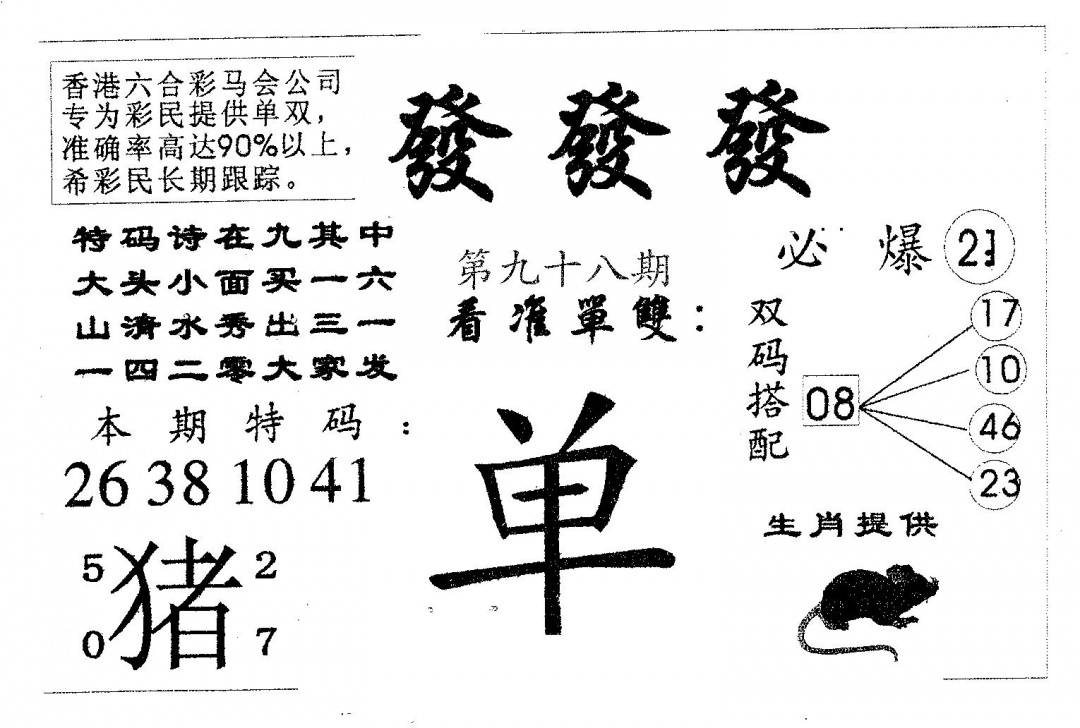 香港六合彩马会公司
专为彩民提供单双,
准确率高达90%以上,
希彩民长期跟踪。
發發發
特码诗在九其中
大头小面买一六
山清水秀出三一
一四二零大家发
第九十八期
看准單雙:
必爆
双码搭配
08
17
10
46
23
本期特码:
26 38 10 41
单
5 猪 2
0 7
生肖提供